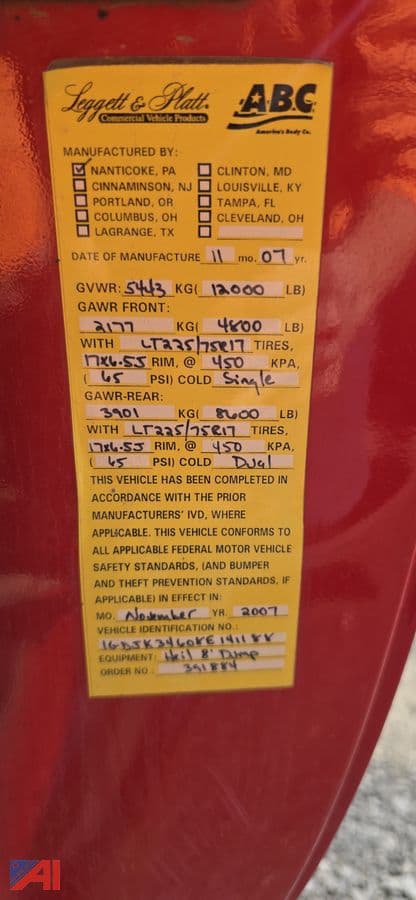 Leggett & Platt
Commercial Vehicle Products
ABC
America's Body Co.
MANUFACTURED BY:
NANTICOKE, PA CLINTON, MD
CINNAMINSON, NJ LOUISVILLE, KY
PORTLAND, OR TAMPA, FL
COLUMBUS, OH CLEVELAND, OH
LAGRANGE, TX
DATE OF MANUFACTURE 11 mo. 07 yr.
GVWR: 5443 KG( 12000 LB)
GAWR FRONT:
2177 KG( 4800 LB)
WITH LT225/75R17 TIRES,
17x6.5J RIM, @ 450 KPA,
( 65 PSI) COLD Single
GAWR-REAR:
3901 KG( 8600 LB)
WITH LT225/75R17 TIRES,
17x6.5J RIM, @ 450 KPA,
( 65 PSI) COLD Dual
THIS VEHICLE HAS BEEN COMPLETED IN
ACCORDANCE WITH THE PRIOR
MANUFACTURERS' IVD, WHERE
APPLICABLE. THIS VEHICLE CONFORMS TO
ALL APPLICABLE FEDERAL MOTOR VEHICLE
SAFETY STANDARDS, (AND BUMPER
AND THEFT PREVENTION STANDARDS, IF
APPLICABLE) IN EFFECT IN:
MO. November YR. 2007
VEHICLE IDENTIFICATION NO.:
EQUIPMENT: Heil 8' Dump
ORDER NO.: 391884
AI